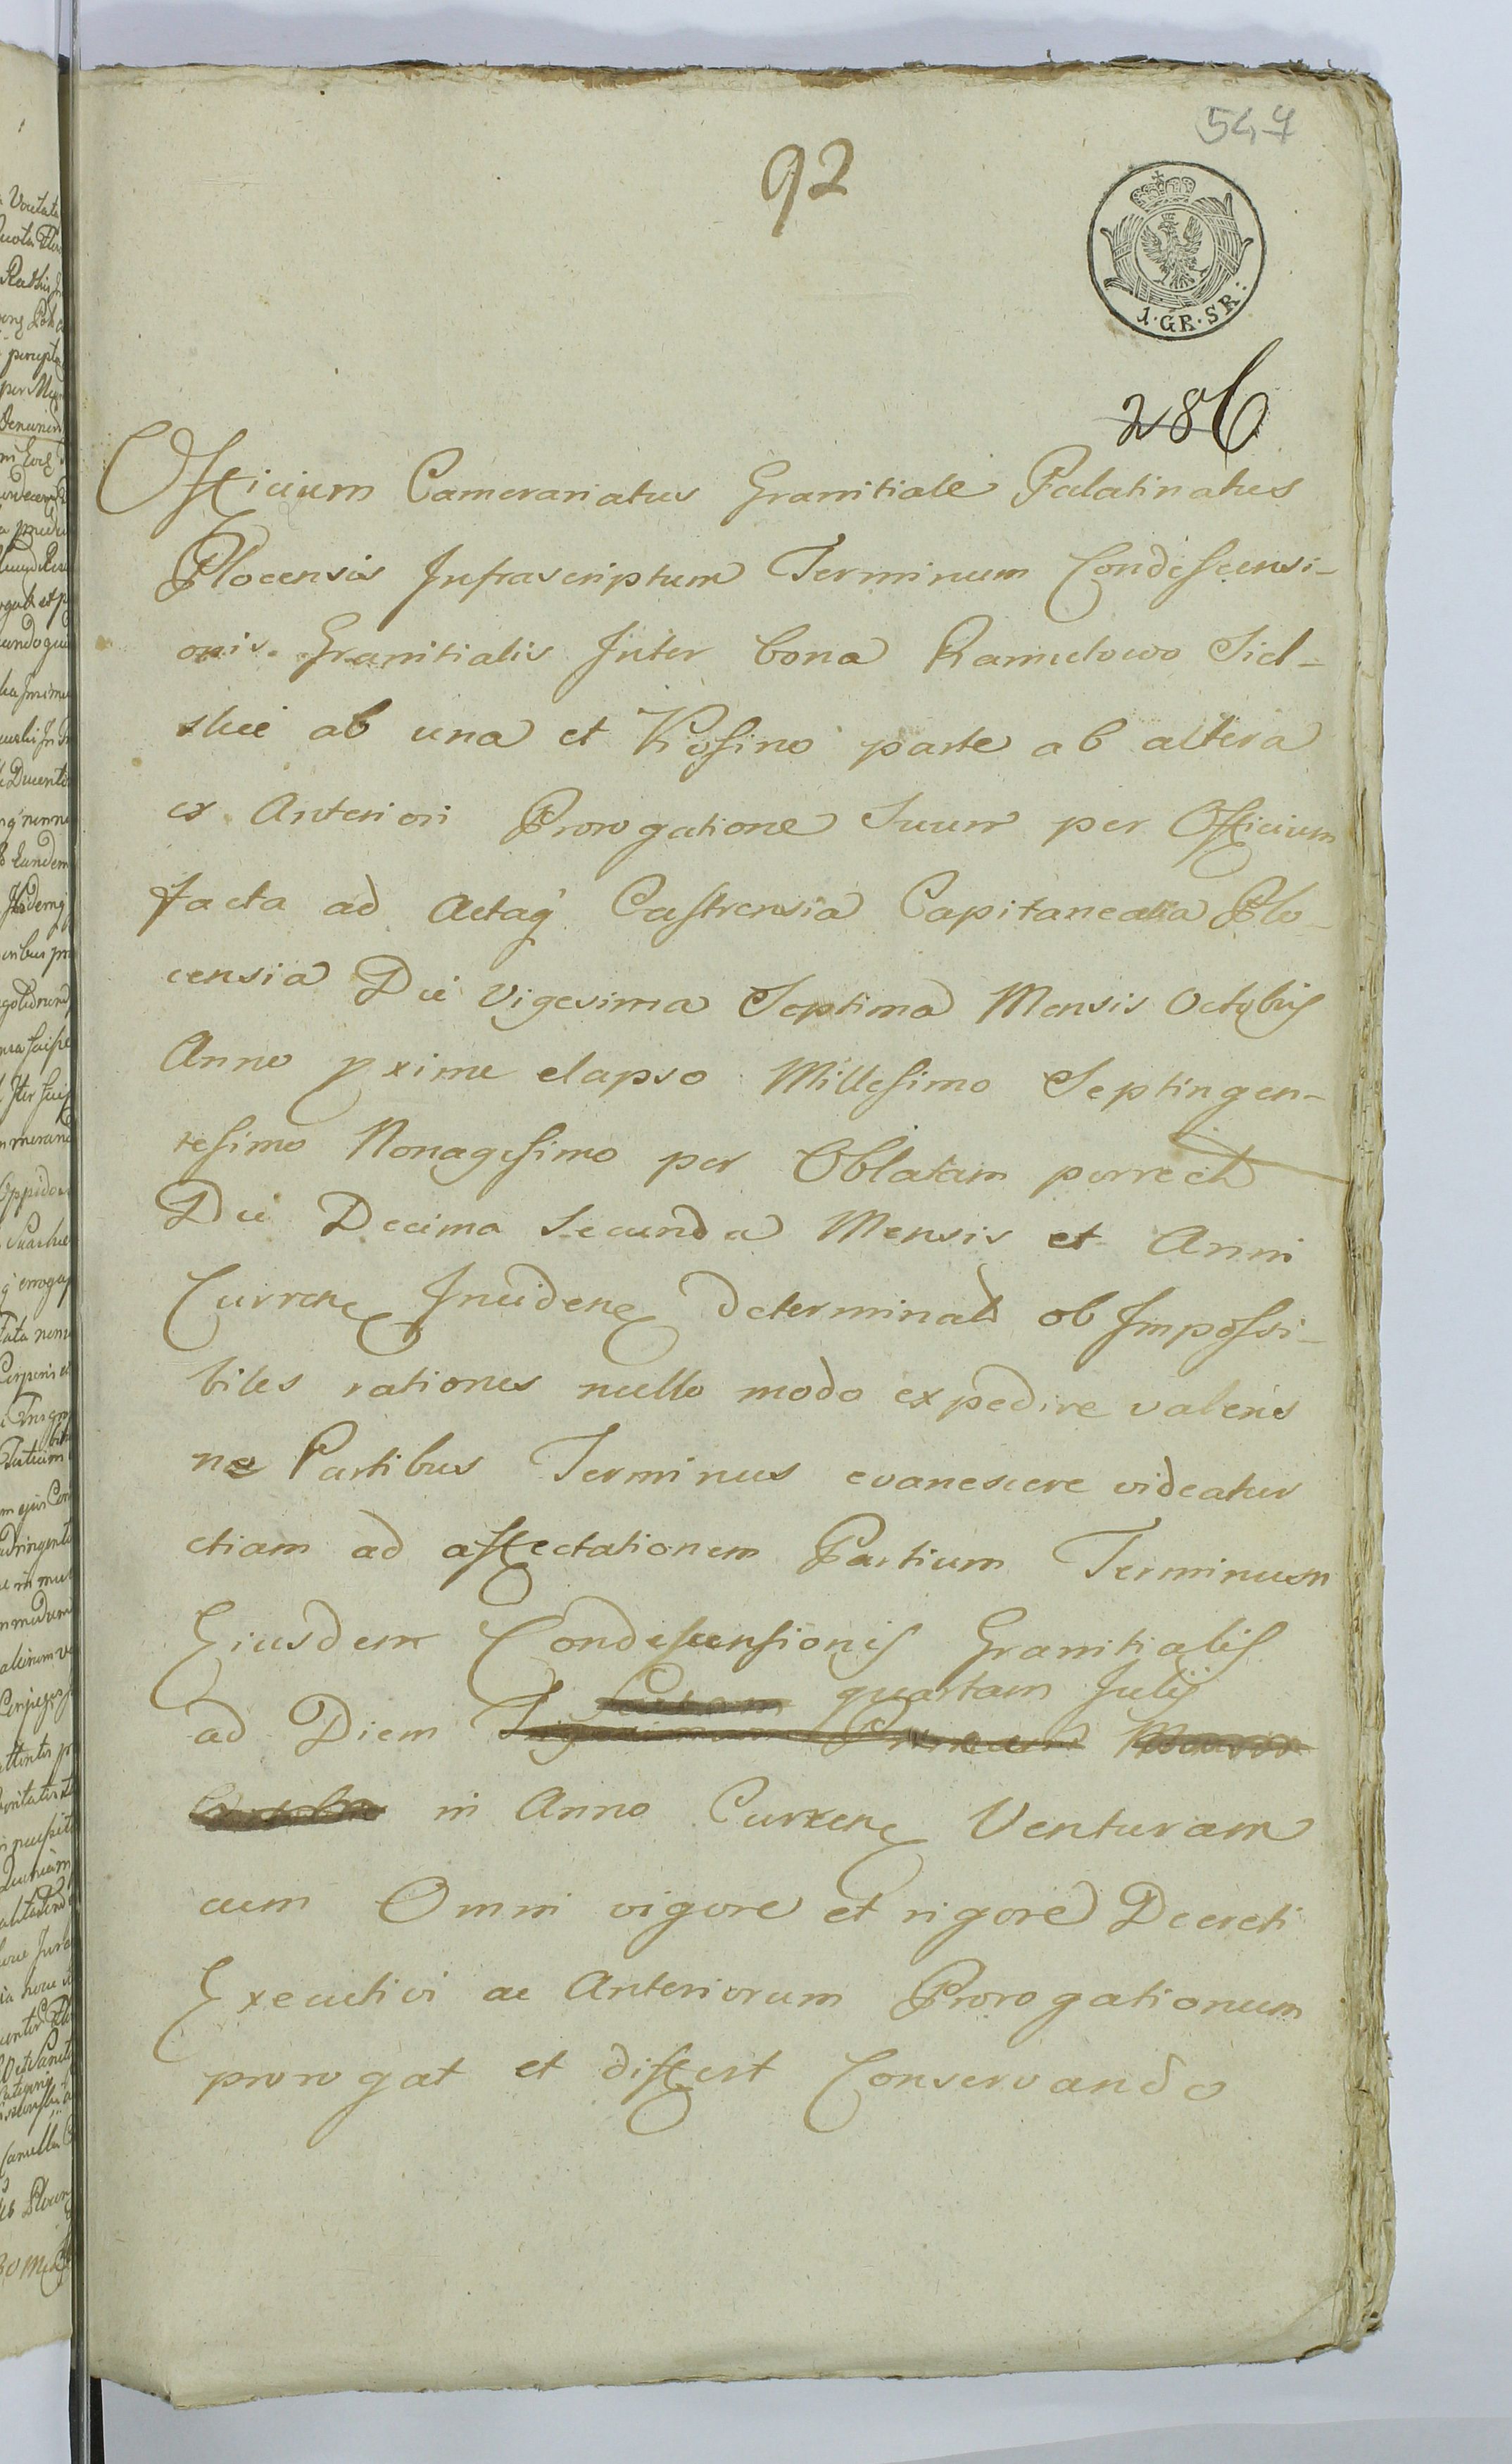 547
92
1·GR·SR:
286
Officium Camerariatus Granitiale Palatinatus
Plocensis Infrascriptum Terminum Condescensi-
onis Granitialis Inter bona Ramutowo Siel-
skie ab una et Rosino parte ab altera
ex Anteriori Prorogatione Suum per Officium
facta ad Actaq Castrensia Capitanealia Plo-
censia Die vigesima Septima Mensis Octobris
Anno pxime elapso Millesimo Septingen-
tesimo Nonagesimo per Oblatam porrect
Die Decima Secunda Mensis et Anni
Curren Inciden determinat ob Impossi-
biles rationes nullo modo expedire valens
ne Partibus Terminus evanescere videatur
etiam ad affectationem Partium Terminum
Eiusdem Condescensionis Granitialis
quartam Julij
ad Diem
in Anno Curren Venturam
cum Omni vigore et rigore Decreti
Executivi ac Anteriorum Prorogationum
prorogat et differt Conservando